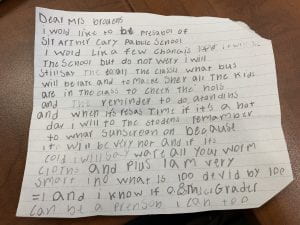 Dear Mrs
I wold like to be
Sir Artner Cary Pablic School
I wold Lik a few changis
The School but do not wery I will
Still say The The classis what bus
will be late and to make sher all The Kids
are in The class to check The hols
and The reminder to do atandins
and when it's resas Time if it's a hot
day I will to The stodens remamber
to whar sunscrean on because
it will be very hot and if its
cold I will say ware all your worm
cloths and Plus I am very
smart ino what is 100 devid by 100
=1 and I know if a 8th Grader
can be a I can too